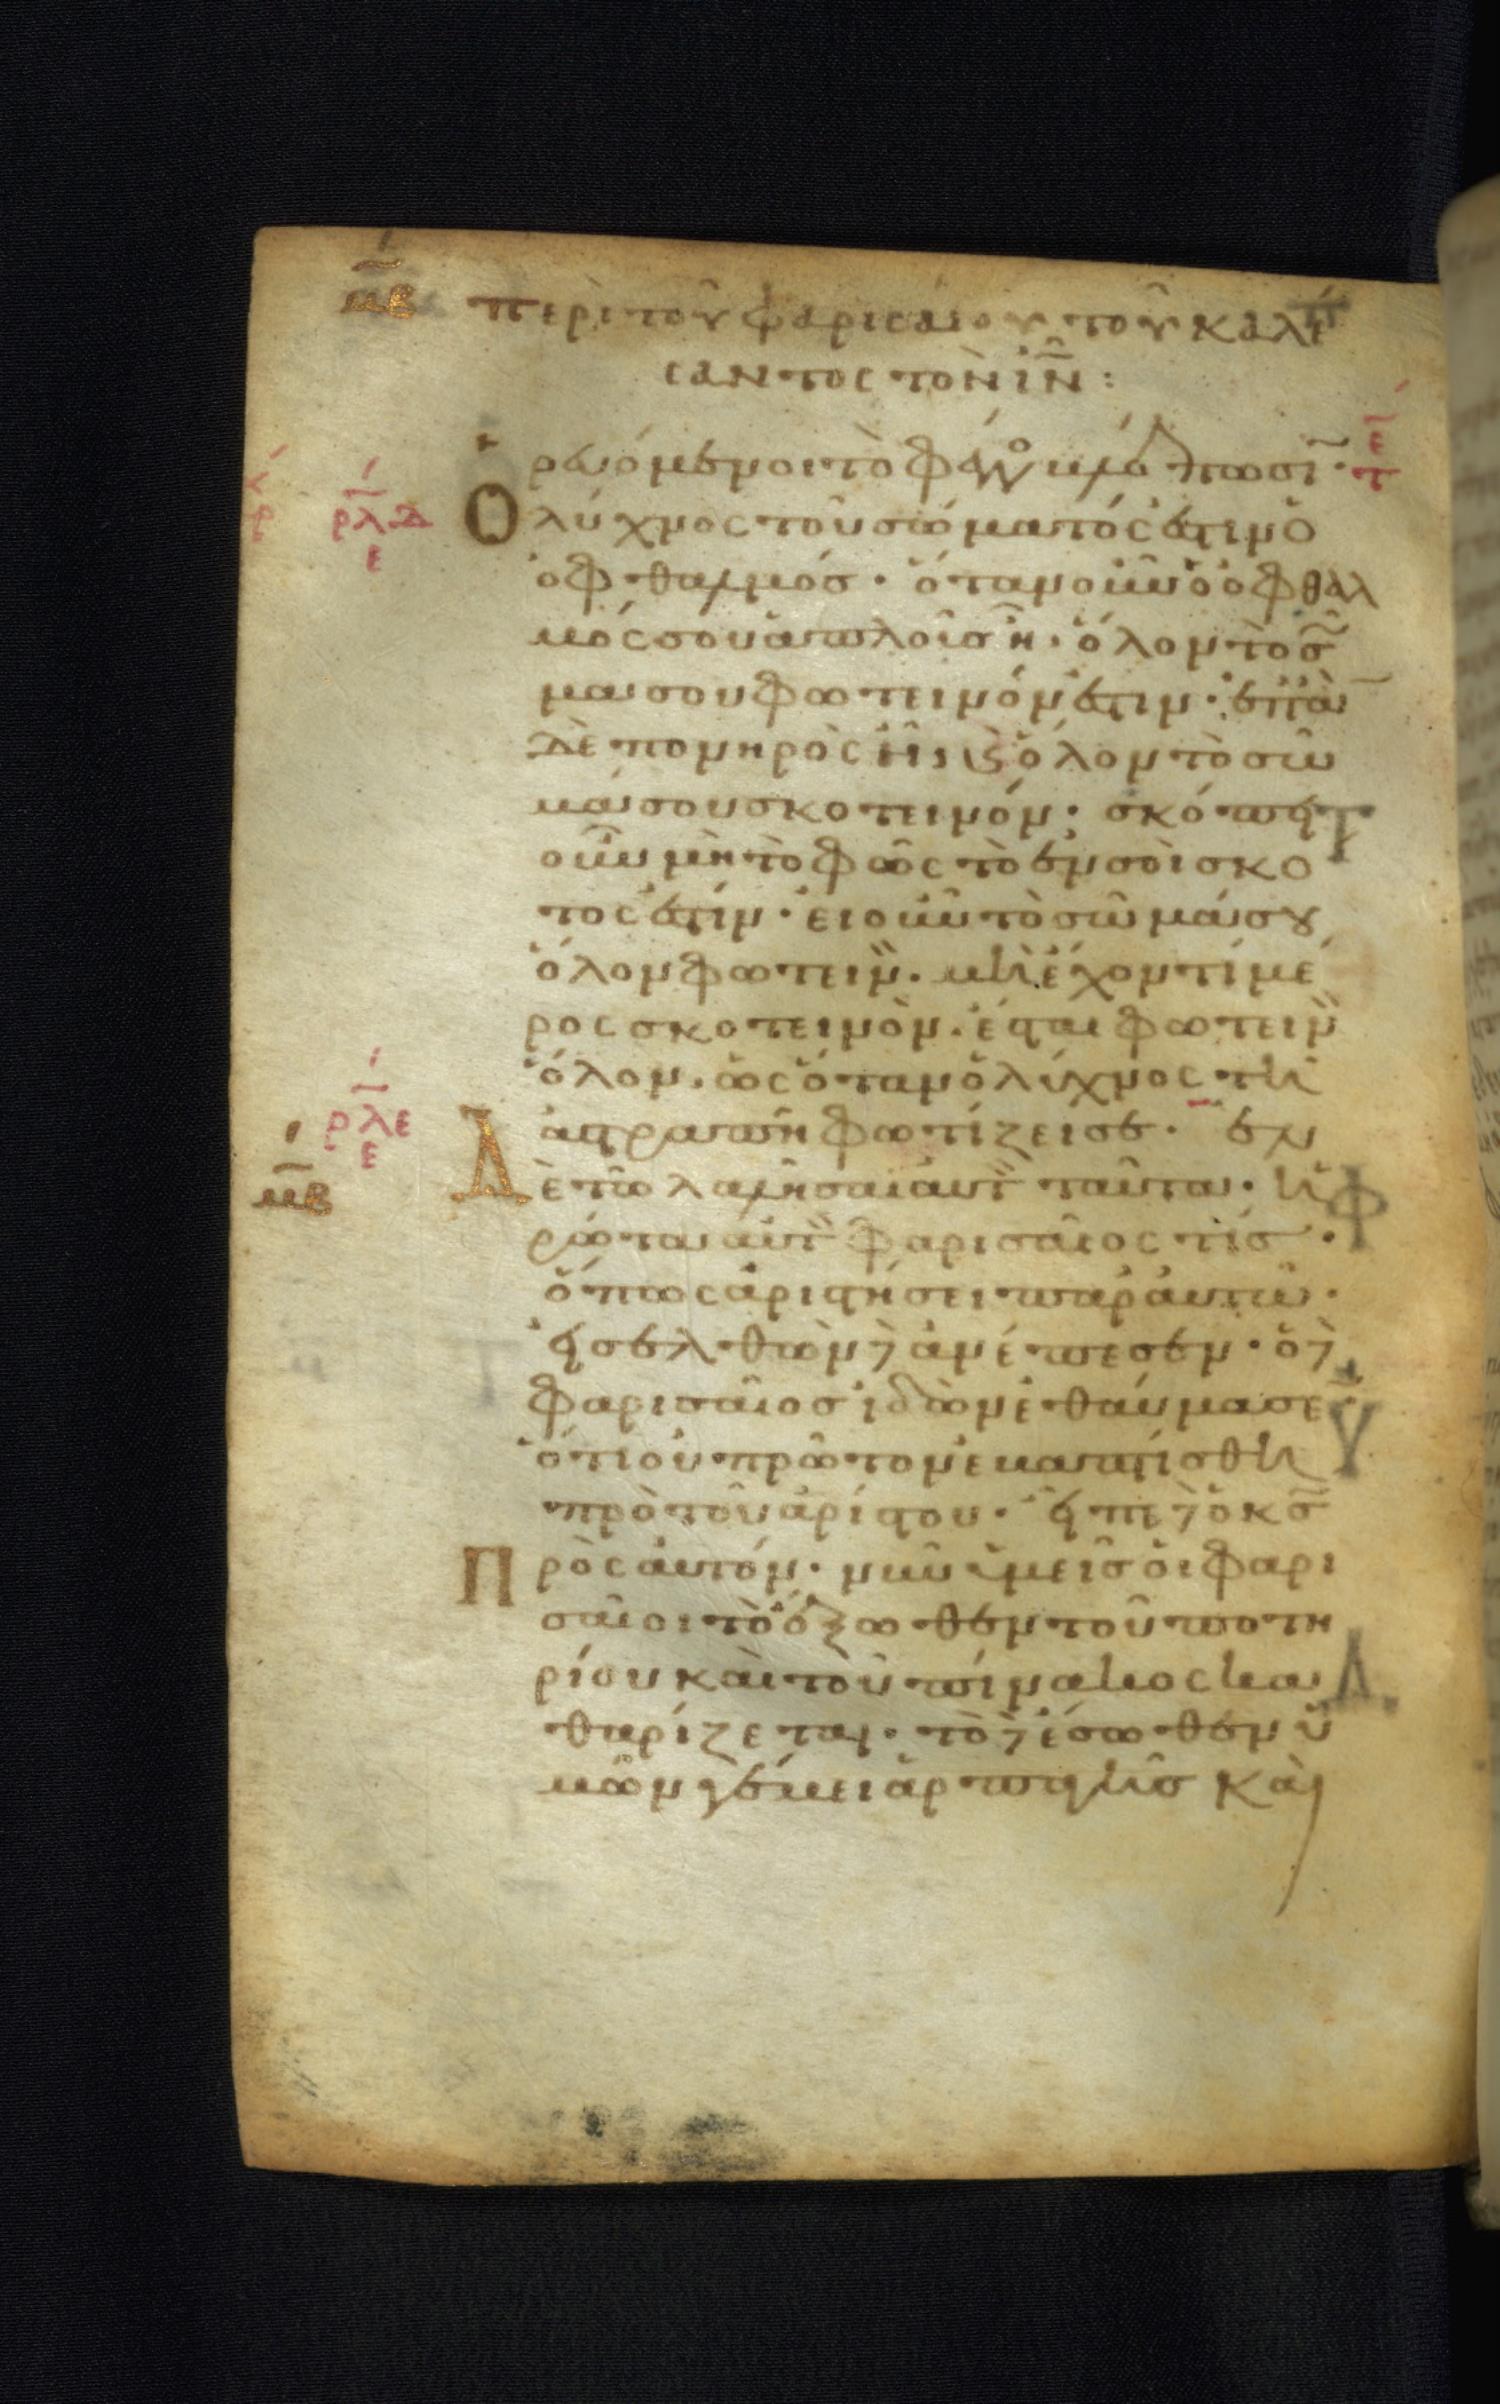 μβ περὶ τοῦ φαρισαίου τοῦ καλέ
σαντος τὸν ἰν̅:
ρευόμενοι τὸ βλέπωσϊ·
ρλδ Ὁ λύχνος τοῦ σώματός ἐστιν ὁ
ε ὀφθαλμόσ· ὅταν οὖν ὁ ὀφθαλ
μός σου ἁπλοῦσ ῆ· ὅλον τὸ σῶ
μα σου φωτεινόν ἐστιν· ἐπὰν
δὲ πονηρὸς ῆ, ϗ ὅλον τὸ σῶ
μα σου σκοτεινόν· σκόπει
οὖν μὴ τὸ φῶς τὸ ἐν σοὶ σκό
τος ἐστίν· εἰ οὖν τὸ σῶμα σου
ὅλον φωτειν· μὴ ἔχον τί μέ
ρος σκοτεινὸν· ἔσται φωτειν
ὅλον· ὡς ὅταν ὁ λύχνος τῆ
ρλε ἀστραπῆ φωτίζει σε· ἐν
ε
μβ Δ ὲ τῶ λαλῆσαι αὐτ ταῦτα· ἠ
ρώτα αὐτ φαρισαῖος τίσ·
ὅπως ἀριστήσει παρ' αὐτῶ·
εἰσελθὼν δὲ ἀνέπεσεν· ὁ δὲ
φαρισαῖοσ ἰδὼν ἐθαύμασε
ὅτι οὐ πρῶτον ἐβαπτίσθη
πρὸ τοῦ ἀρίστου· εἶπε δὲ ὁ κσ̅
Π ρὸς αὐτόν· νῦν ὑμεῖσ οἱ φαρι
σαῖοι τὸ ἔξωθεν τοῦ ποτη
ρίου καὶ τοῦ πίνακος κα
θαρίζεται· τὸ δὲ ἔσωθεν ὑ
μῶν γέμει ἁρπαγῆσ καὶ